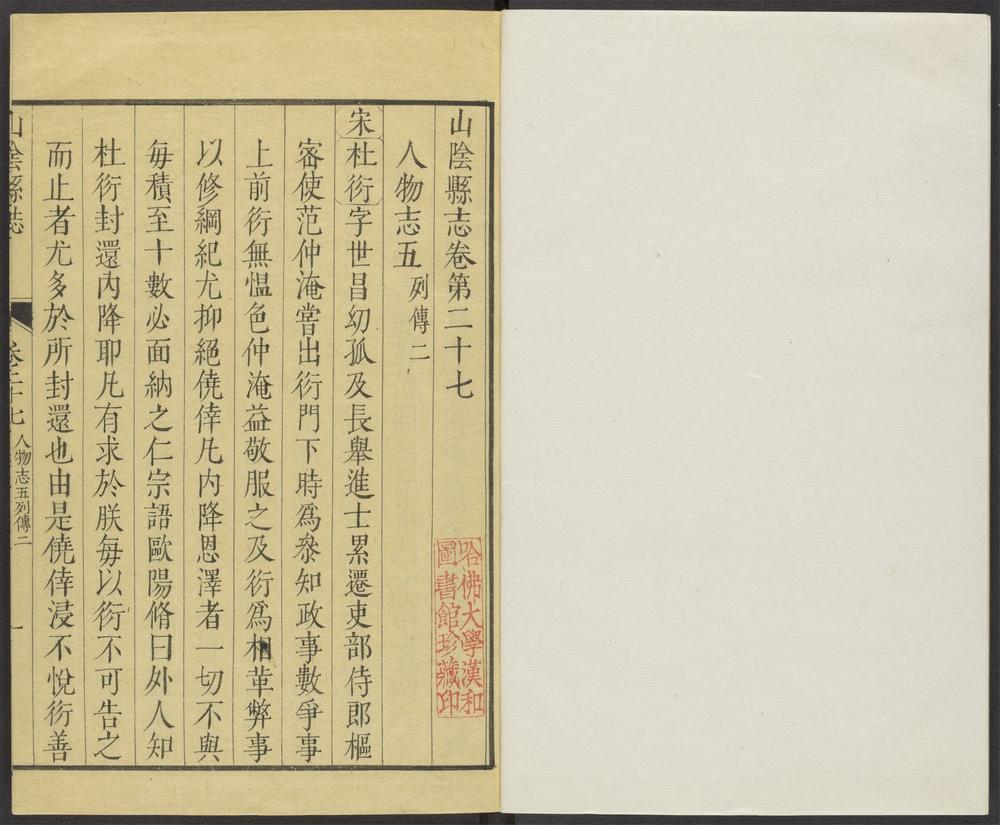 山陰縣志卷第二十七
人物志五列傳二
宋杜衍字世昌幼孤及長舉進士累遷吏部侍郎樞
密使范仲淹嘗出衍門下時爲叅知政事數爭事
上前衍無愠色仲淹益敬服之及衍爲相革弊事
以修綱紀尤抑絕僥倖凡内降恩澤者一切不與
每積至十數必面納之仁宗語歐陽脩曰外人知
杜衍封還内降耶凡有求於朕每以衍不可告之
而止者尤多於所封還也由是僥倖浸不悅衍善
山陰縣志
卷二十七
人物志五列傳二
一
哈佛大學漢和
圖書館珍藏印